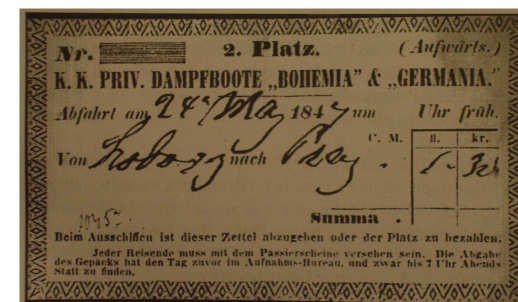 Nr. 2. Platz. (Aufwärts.)
K. K. PRIV. DAMPFBOOTE „BOHEMIA” & „GERMANIA.”
Abfahrt am 24 May 1847 um Uhr früh.
C. M. fl. kr.
Von nach Prag . 1-
Summa .
Beim Ausschiffen ist dieser Zettel abzugeben oder der Platz zu bezahlen.
Jeder Reisende muss mit dem Passierscheine versehen sein. Die Abgabe
des Gepäcks hat den Tag zuvor im Aufnahms-Bureau, und zwar bis 7 Uhr Abends
Statt zu finden.